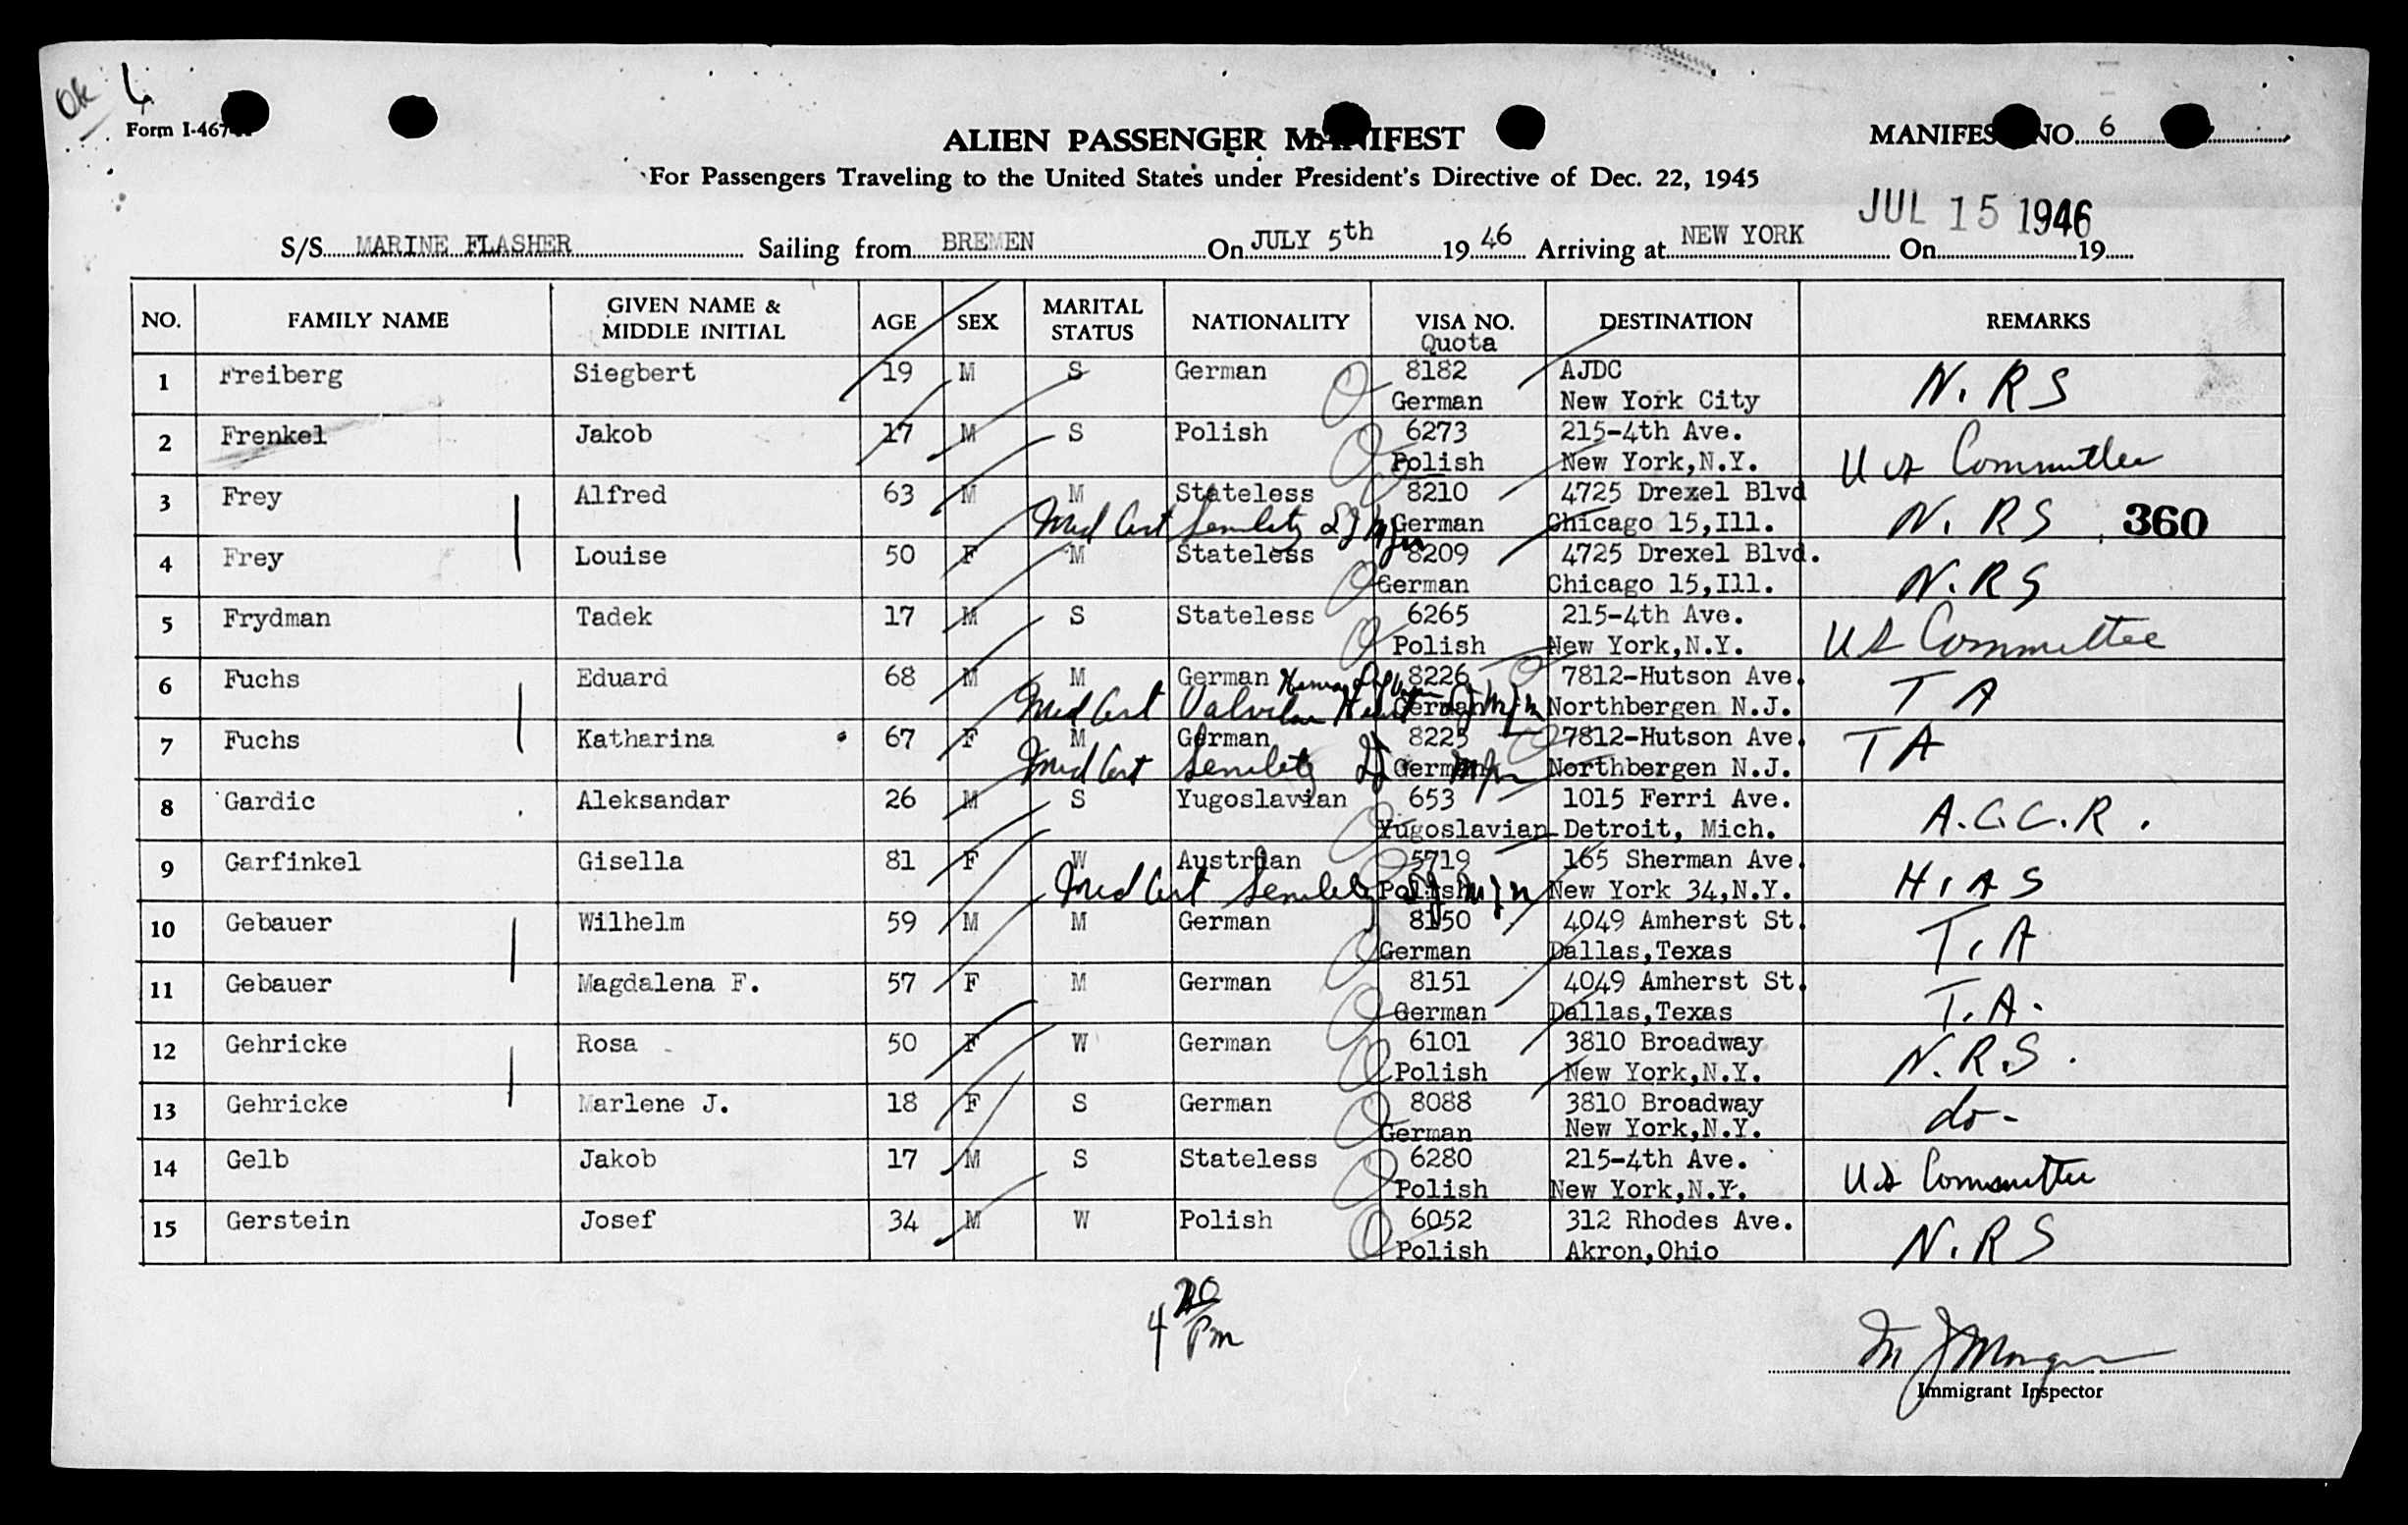 OK 6
Form I-467
ALIEN PASSENGER MANIFEST
MANIFEST NO. 6
For Passengers Traveling to the United States under President's Directive of Dec. 22, 1945
JUL 15 1946
S/S MARINE FLASHER Sailing from BREMEN On JULY 5th 19 46 Arriving at NEW YORK On 19
NO. FAMILY NAME GIVEN NAME & MIDDLE INITIAL AGE SEX MARITAL STATUS NATIONALITY VISA NO. Quota DESTINATION REMARKS
1 Freiberg Siegbert 19 M S German 8182 AJDC N.RS
German New York City
2 Frenkel Jakob 17 M S Polish 6273 215-4th Ave. US Committee
Polish New York,N.Y.
3 Frey Alfred 63 M M Stateless 8210 4725 Drexel Blvd N.RS 360
Med Cert Senility German Chicago 15,Ill.
4 Frey Louise 50 F M Stateless 8209 4725 Drexel Blvd. N.RS
German Chicago 15,Ill.
5 Frydman Tadek 17 M S Stateless 6265 215-4th Ave. US Committee
Polish New York,N.Y.
6 Fuchs Eduard 68 M M German 8226 7812-Hutson Ave. TA
Med Cert Valvular Heart German Northbergen N.J.
7 Fuchs Katharina 67 F M German 8225 7812-Hutson Ave. TA
Med Cert Senility German Northbergen N.J.
8 Gardic Aleksandar 26 M S Yugoslavian 653 1015 Ferri Ave. A.C.C.R.
Yugoslavian Detroit, Mich.
9 Garfinkel Gisella 81 F W Austrian 5719 165 Sherman Ave. HIAS
Med Cert Senility Polish New York 34,N.Y.
10 Gebauer Wilhelm 59 M M German 8150 4049 Amherst St. T.A
German Dallas,Texas
11 Gebauer Magdalena F. 57 F M German 8151 4049 Amherst St. T.A.
German Dallas,Texas
12 Gehricke Rosa 50 F W German 6101 3810 Broadway N.R.S.
Polish New York,N.Y.
13 Gehricke Marlene J. 18 F S German 8088 3810 Broadway do-
German New York,N.Y.
14 Gelb Jakob 17 M S Stateless 6280 215-4th Ave. US Committee
Polish New York,N.Y.
15 Gerstein Josef 34 M W Polish 6052 312 Rhodes Ave. N.RS
Polish Akron,Ohio
4 20 Pm
Immigrant Inspector